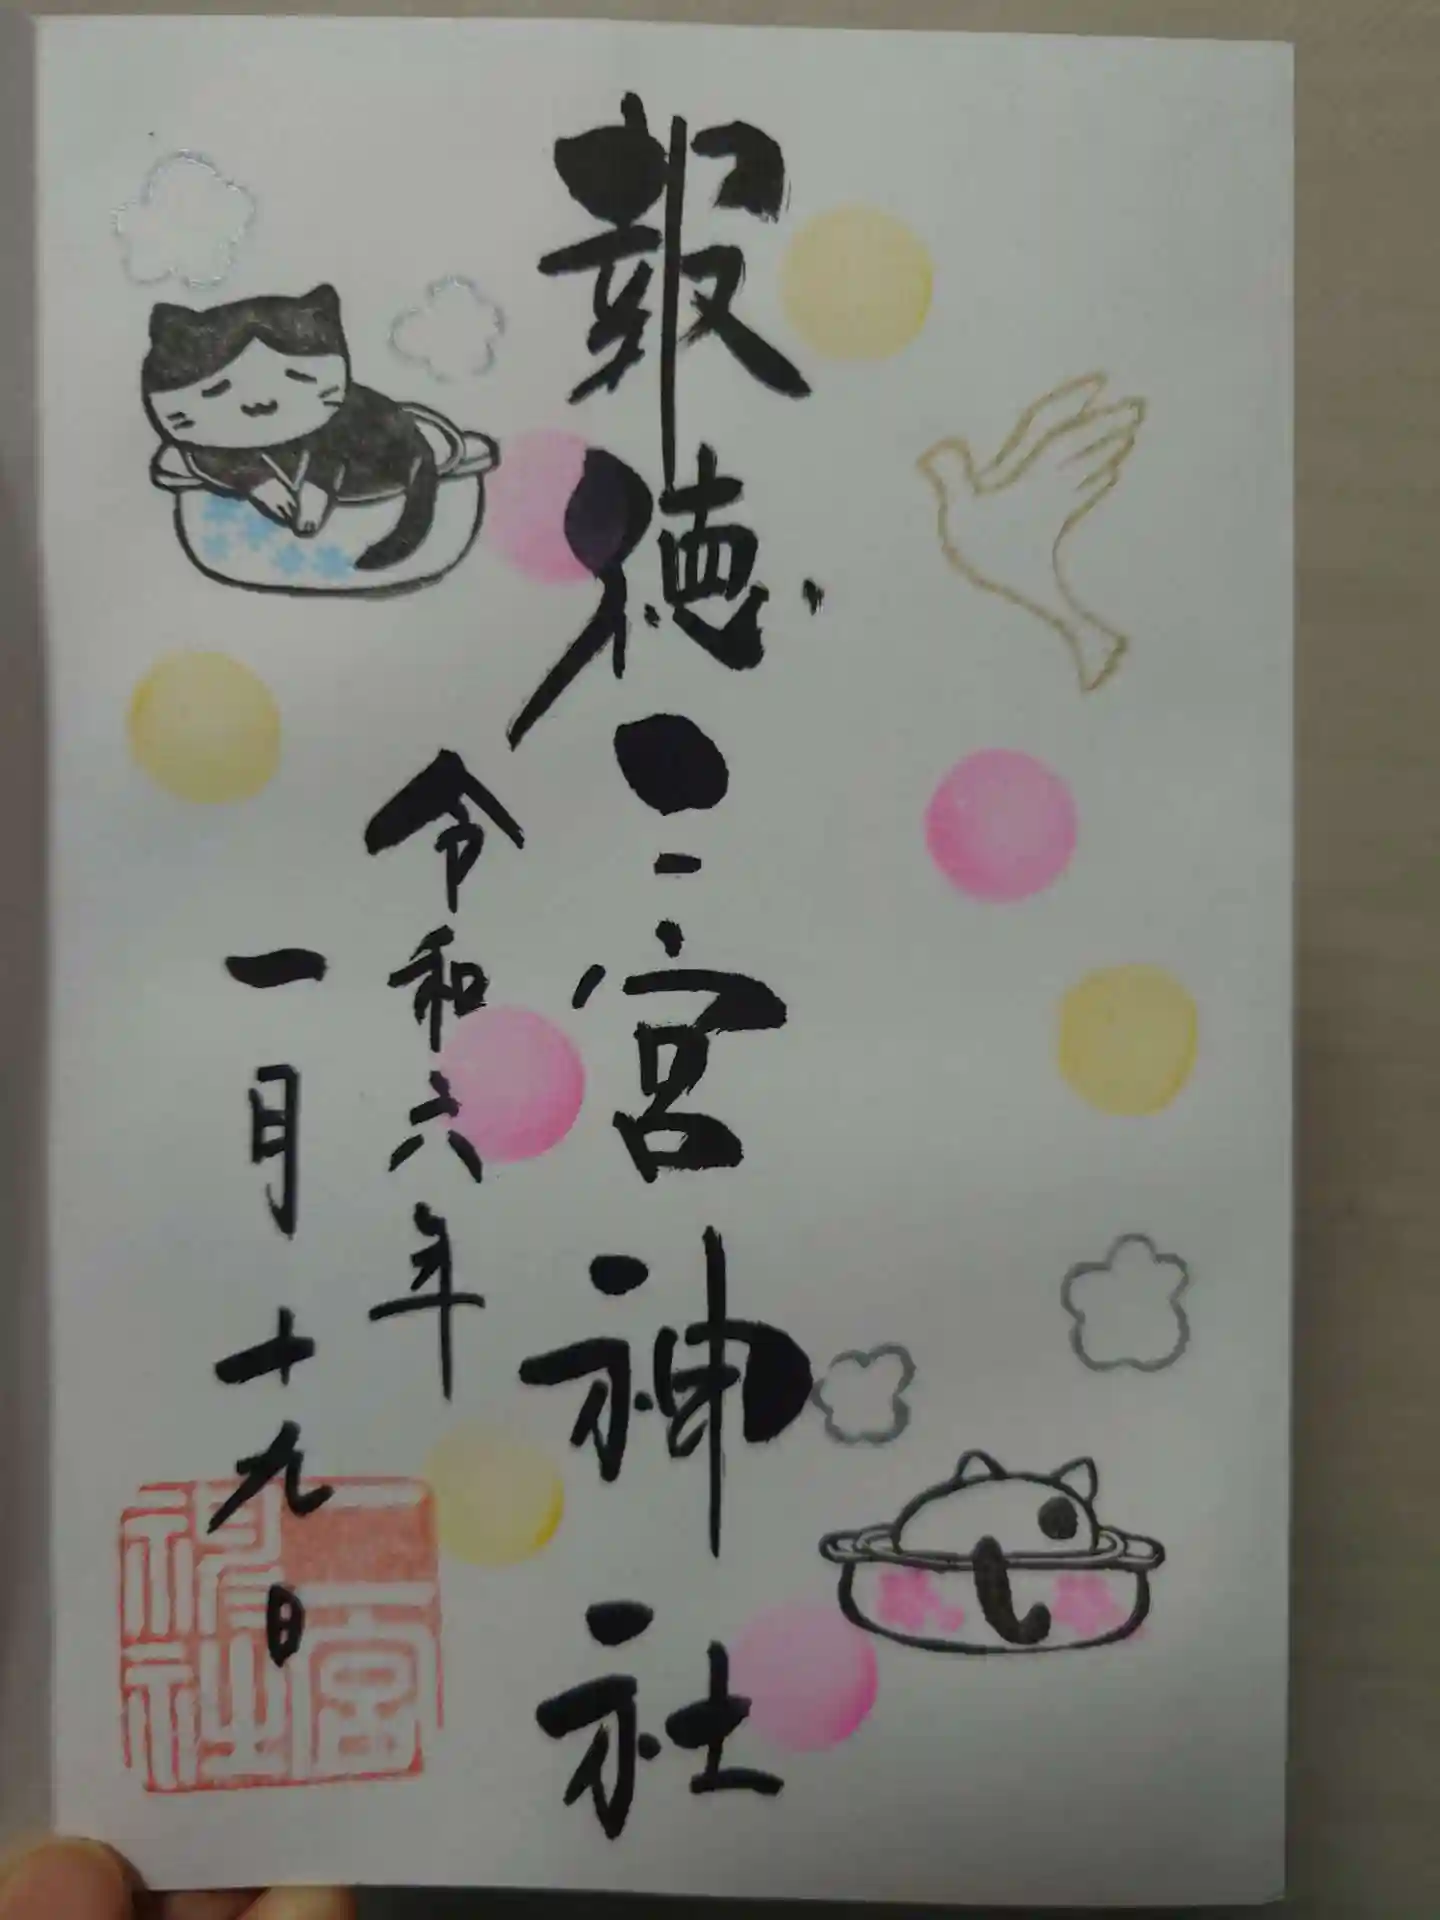 報徳二宮神社
令和六年
一月十九日
二宮
神社